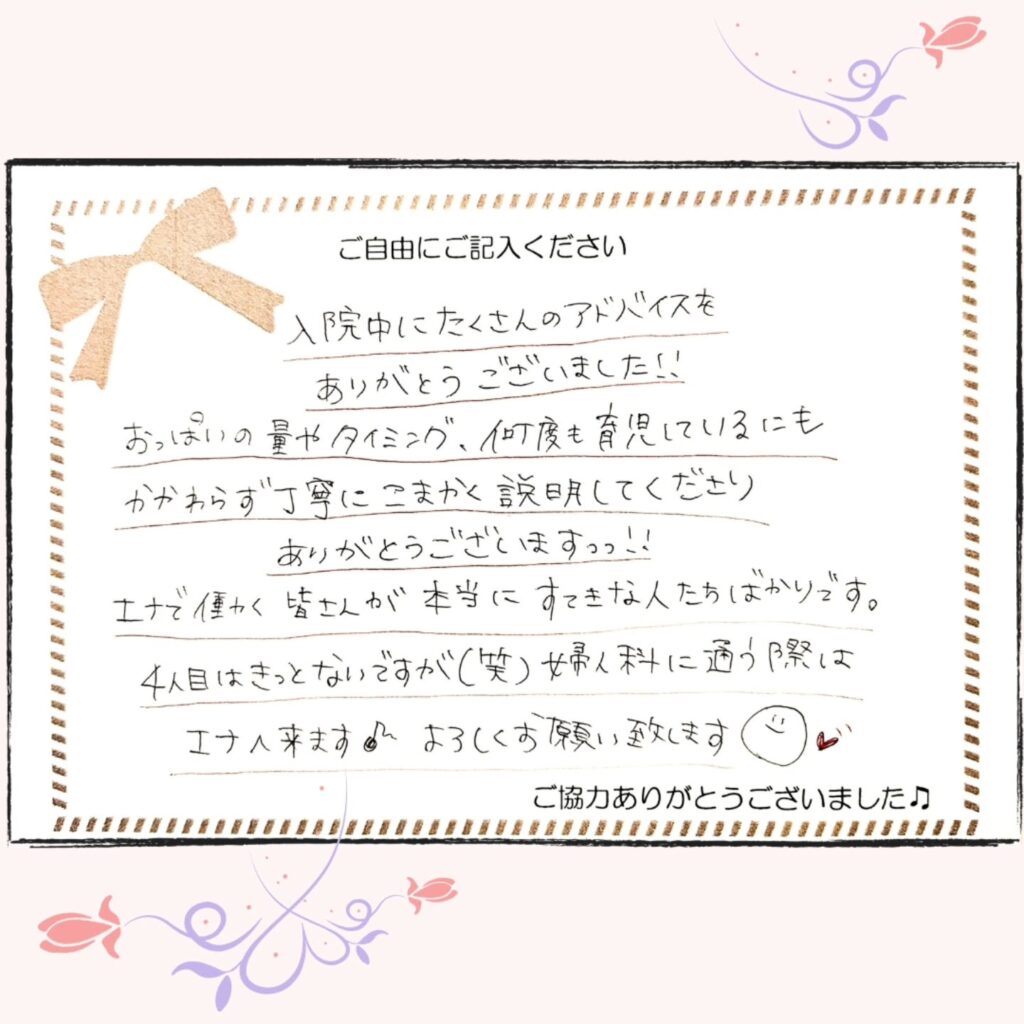 ご自由にご記入ください
入院中にたくさんのアドバイスを
ありがとうございました!!
おっぱいの量やタイミング、何度も育児しているにも
かかわらず丁寧にこまかく説明してくださり
ありがとうございますっっ!!
エナで働く皆さんが本当にすてきな人たちばかりです。
4人目はきっとないですが(笑)婦人科に通う際は
エナへ来ます♪ よろしくお願い致します
ご協力ありがとうございました♫